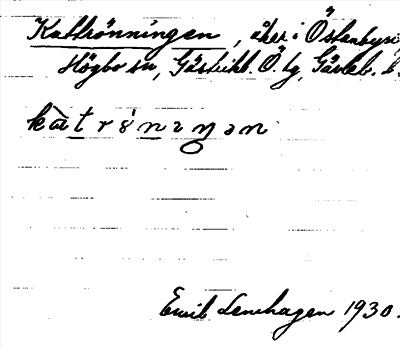 Kattrönningen, åker i Östanbyn
Högbo sn, Gästrikl. Ö. tg, Gävleb. l.
kàtrönıŋən
Emil Lenhagen 1930.